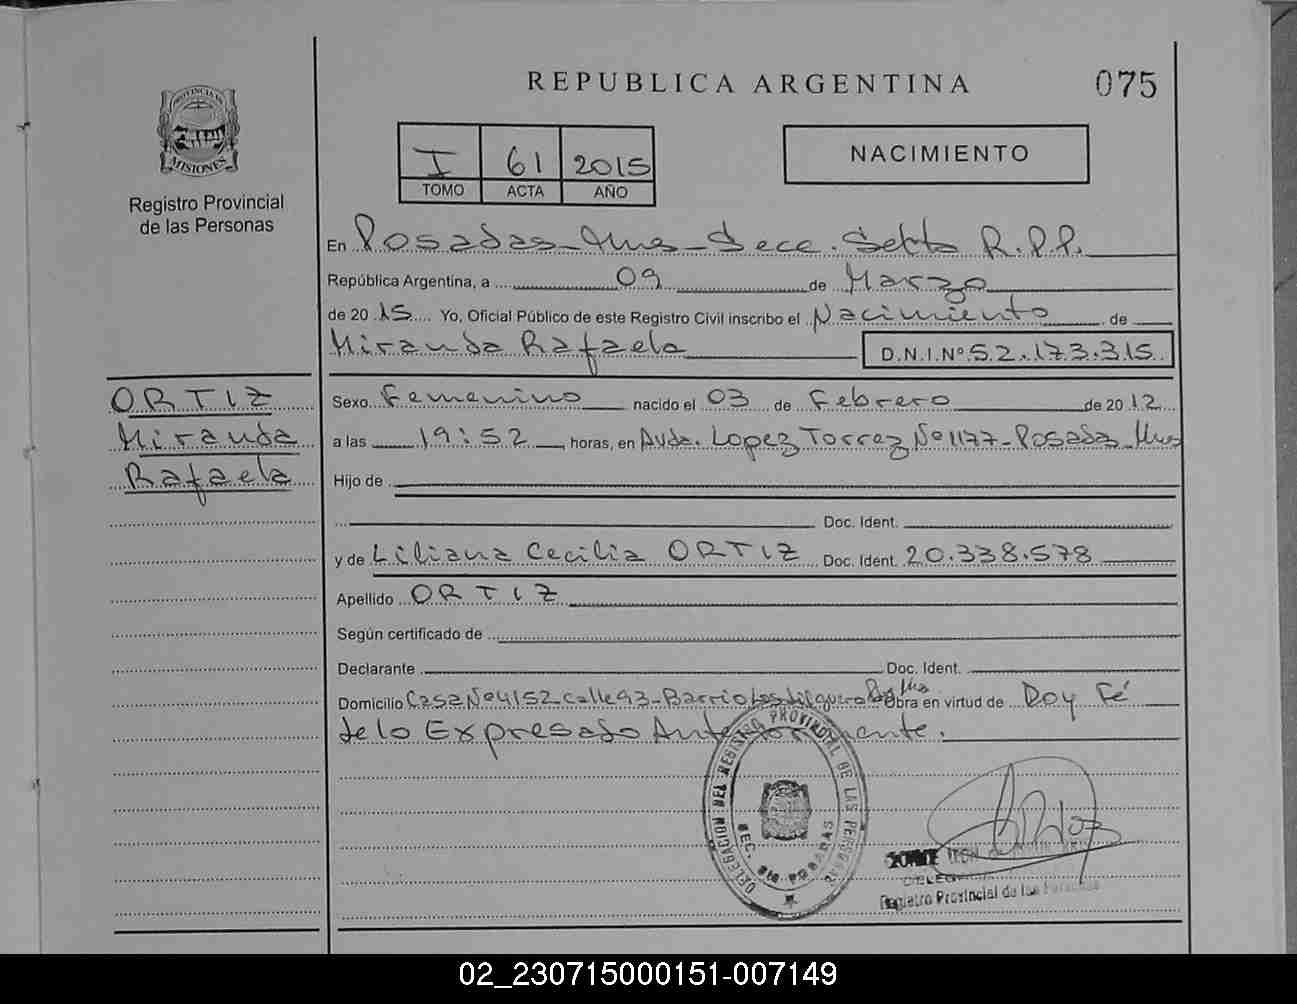 REPUBLICA ARGENTINA
075
PROVINCIA DE
MISIONES
Registro Provincial
de las Personas
I 61 2015
TOMO ACTA AÑO
NACIMIENTO
En Posadas_Mnes_Secc. Sexta R.P.P.
República Argentina, a 09 de Marzo
de 2015 Yo, Oficial Público de este Registro Civil inscribo el Nacimiento de
Miranda Rafaela D.N.I.Nº 52.173.315
ORTIZ
Miranda
Rafaela
Sexo Femenino nacido el 03 de Febrero de 2012
a las 19:52 horas, en Avda. Lopez Torrez Nº 1177-Posadas_Mnes
Hijo de
Doc. Ident.
y de Liliana Cecilia ORTIZ Doc. Ident. 20.338.578
Apellido ORTIZ
Según certificado de
Declarante Doc. Ident.
Domicilio Casa Nº 4152 calle 93-Barrio Los Jilguero Obra en virtud de Doy Fé
de lo Expresado Anteriormente.
DELEGACION DEL REGISTRO PROVINCIAL DE LAS PERSONAS
SEC. 6ta POSADAS
Registro Provincial de las Personas
02_230715000151-007149